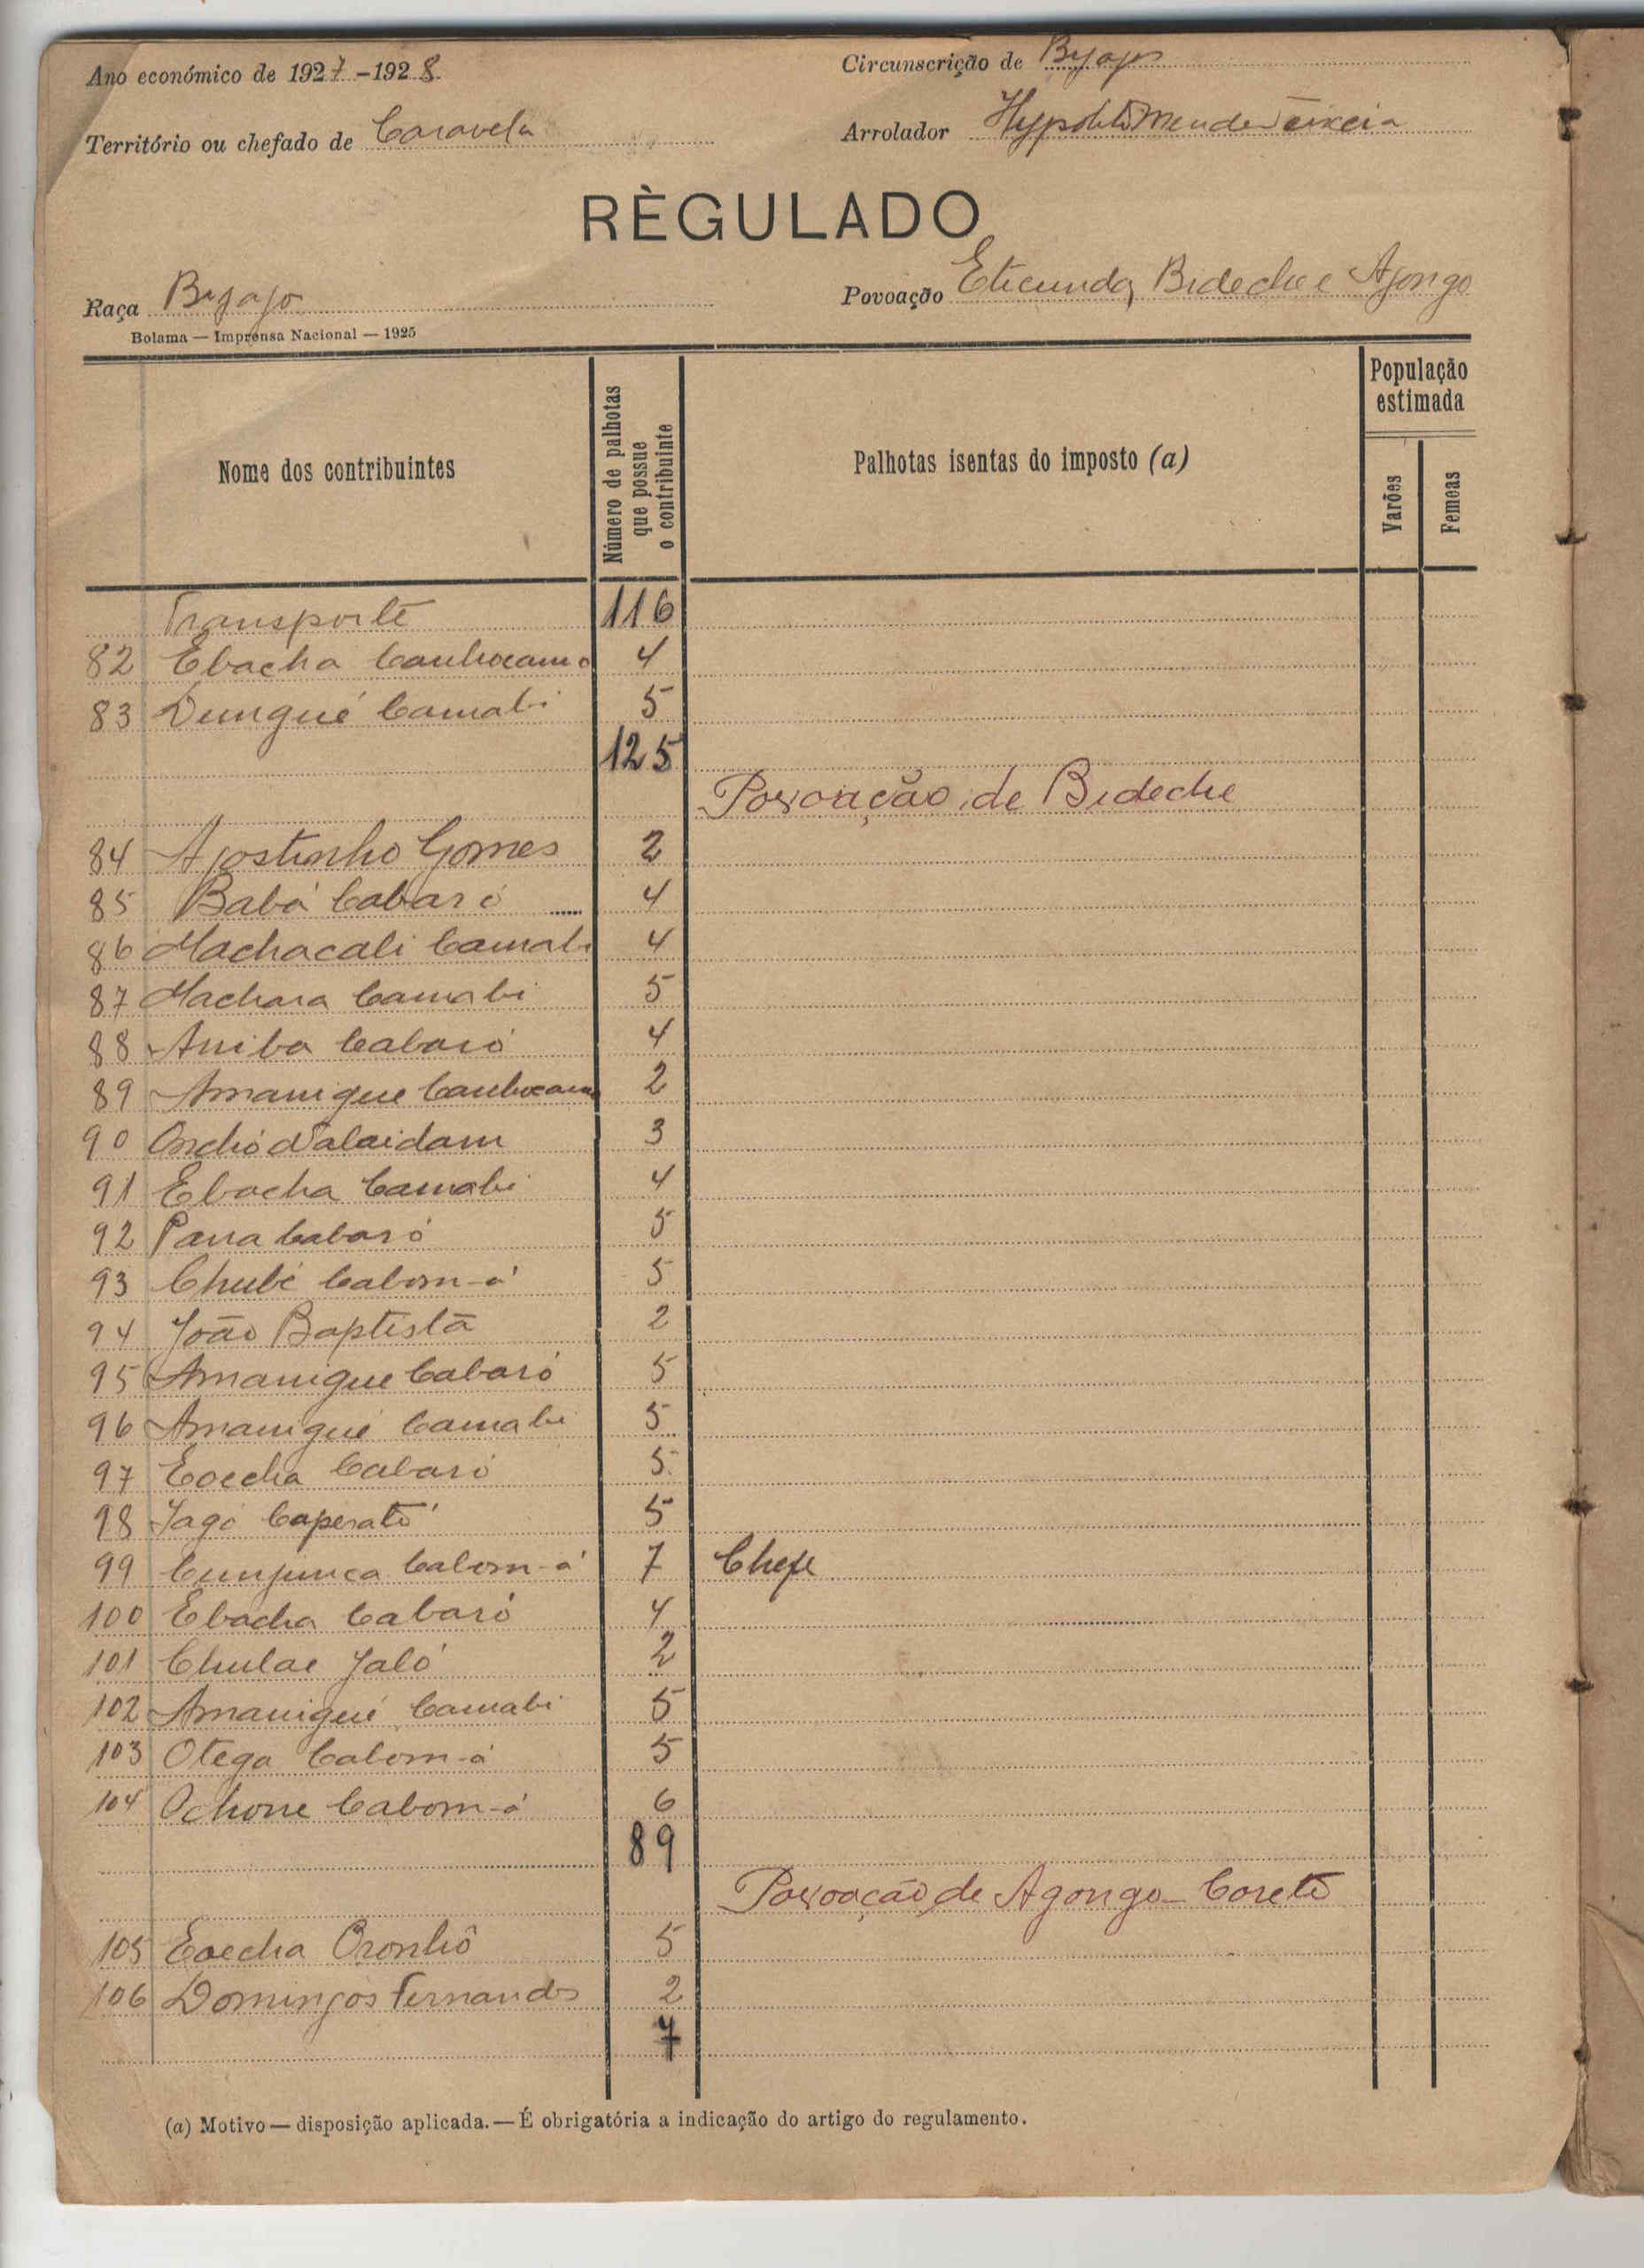 Ano económico de 1927-1928
Circunscrição de Byajós
Território ou chefado de Caravela
Arrolador Hypolito Mendes Teixeira
RÈGULADO
Raça Byajo
Povoação Eticunda, Bideche e Agongo
Bolama — Imprensa Nacional — 1925
Nome dos contribuintes
Número de palhotas que possue o contribuinte
Palhotas isentas do imposto (a)
População estimada
Varões
Femeas
Transporte 116
82 Ebacha Canhocamo 4
83 Dungué Camabi 5
125
Povoação de Bideche
84 Agostinho Gomes 2
85 Babá Cabaró 4
86 Machacali Camabi 4
87 Machara Camabi 5
88 Aniba Cabaró 4
89 Amanigue Canhocamo 2
90 Onchó Nalaidam 3
91 Ebacha Camabi 4
92 Pana Cabaró 5
93 Chubé Cabom-á 5
94 João Baptista 2
95 Amanigue Cabaró 5
96 Amanigué Camabi 5
97 Eoecha Cabaró 5
98 Jagó Caperató 5
99 Cunjunca Cabom-á 7 Chefe
100 Ebacha Cabaró 4
101 Chulae Jaló 2
102 Amanigué Camabi 5
103 Otega Cabom-á 5
104 Ochone Cabom-á 6
89
Povoação de Agongo-Coretó
105 Eoecha Oronhô 5
106 Domingos Fernandes 2
7
(a) Motivo — disposição aplicada. — É obrigatória a indicação do artigo do regulamento.